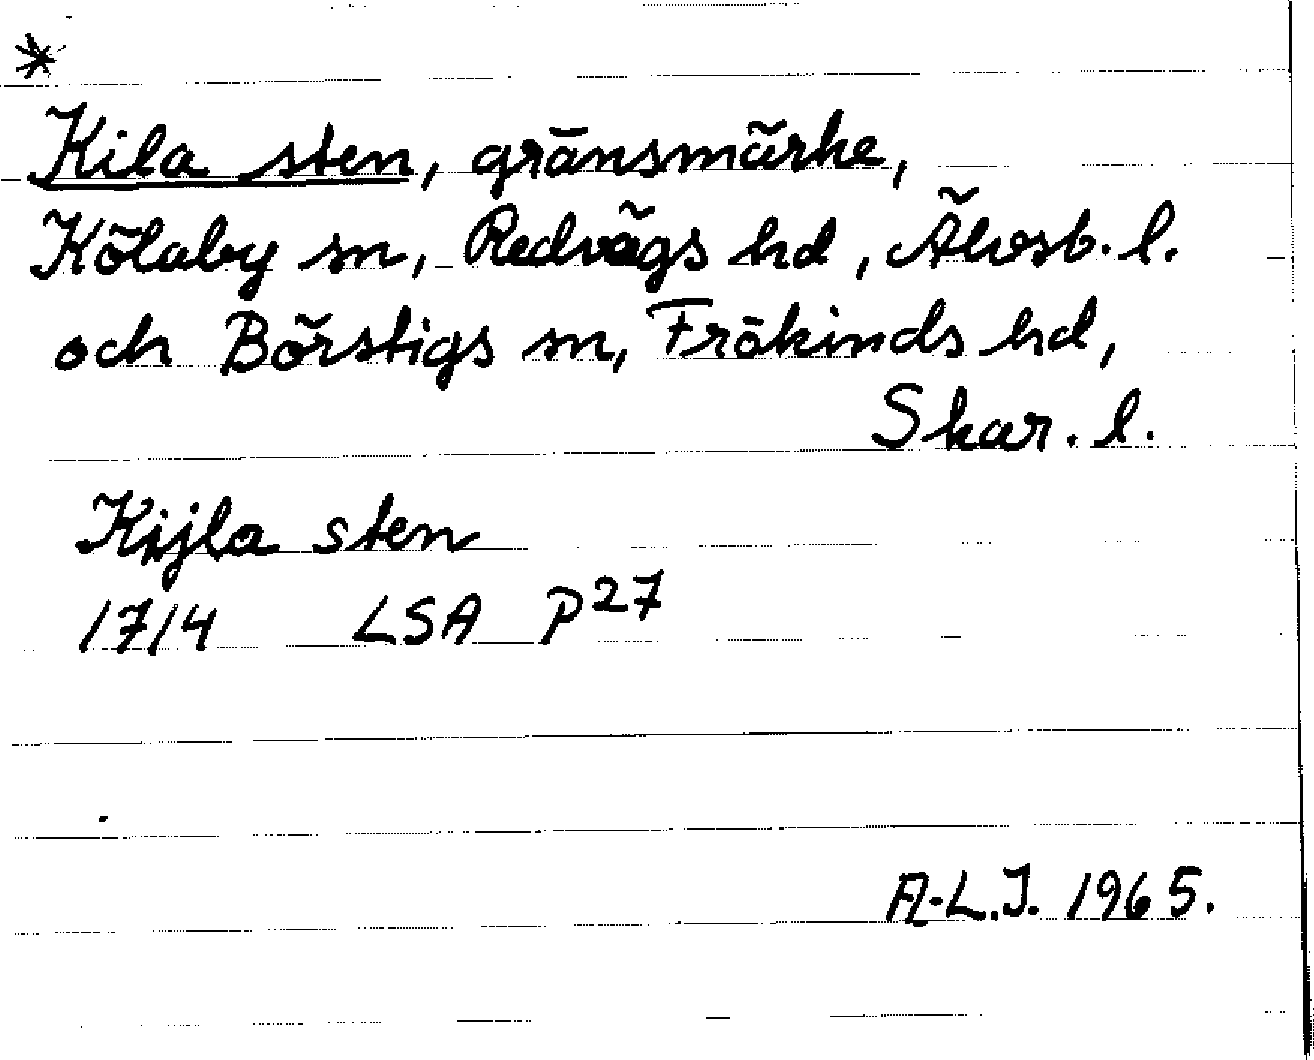 *
Kila sten, gränsmärke,
Kölaby sn, Redvägs hd, Älvsb. l.
och Börstigs sn, Frökinds hd,
Skar. l.
Kijla sten
1714 LSA P27
A-L.J. 1965.